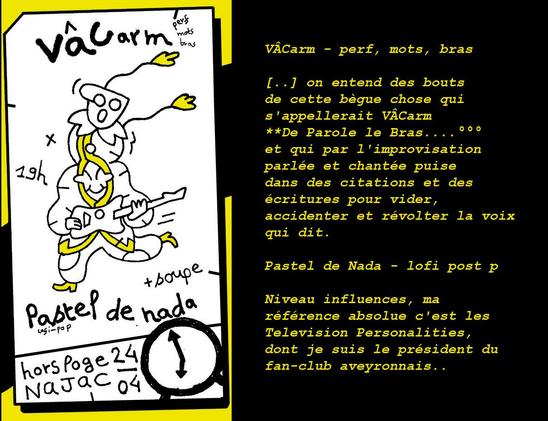 vÂCarm
perf
mots
bras
19h
+ soupe
Pastel de nada
hors Page 24
NAJAC 04
VÂCarm - perf, mots, bras
[..] on entend des bouts
de cette bègue chose qui
s'appellerait VÂCarm
**De Parole le Bras....°°°
et qui par l'improvisation
parlée et chantée puise
dans des citations et des
écritures pour vider,
accidenter et révolter la voix
qui dit.
Pastel de Nada - lofi post p
Niveau influences, ma
référence absolue c'est les
Television Personalities,
dont je suis le président du
fan-club aveyronnais..